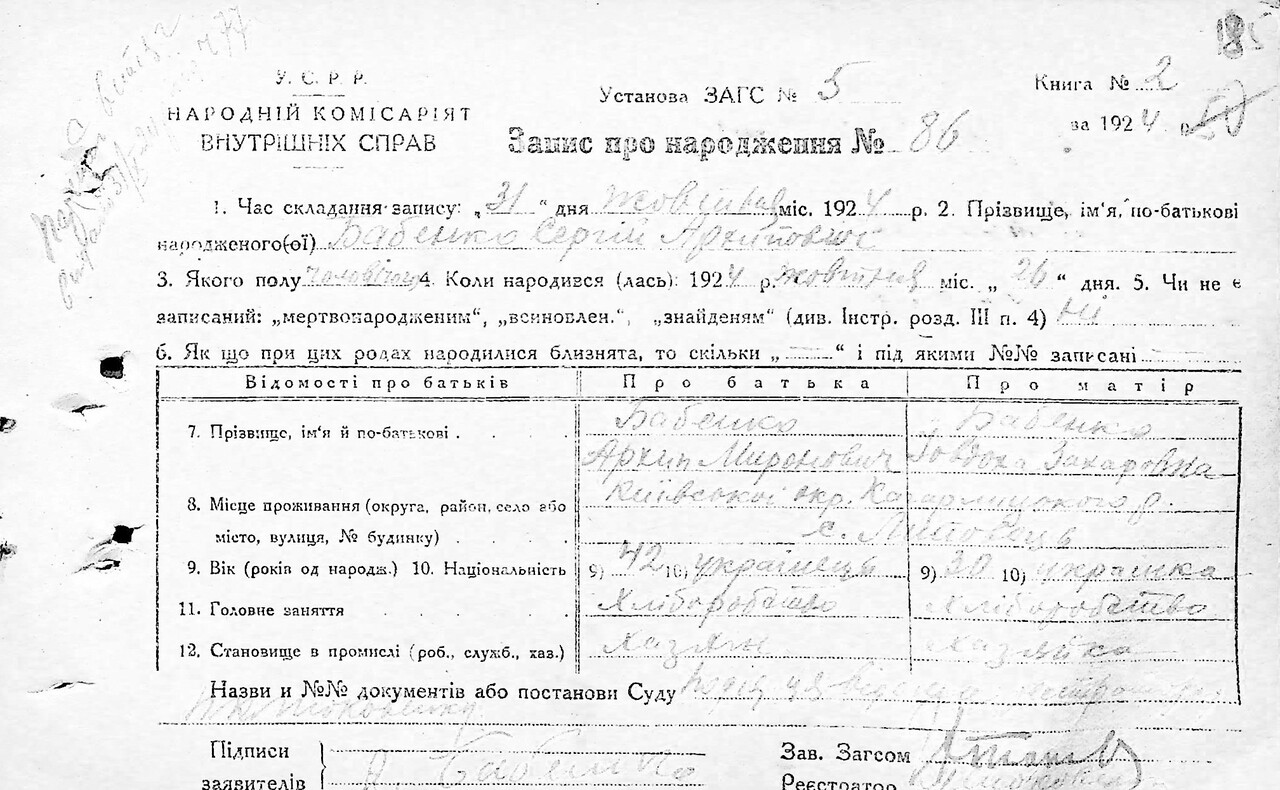 185
У. С. Р. Р.
НАРОДНІЙ КОМІСАРІЯТ
ВНУТРІШНІХ СПРАВ
Установа ЗАГС № 5
Книга № 2
за 1924 р. 50
Запис про народження № 86
1. Час складання запису: „31“ дня жовтня міс. 1924 р. 2. Прізвище, ім'я, по-батькові
народженого(ої) Бабенко Сергій Архипович
3. Якого полу чоловічого 4. Коли народився (лась): 1924 р. жовтня міс. „26“ дня. 5. Чи не є
записаний: „мертвонародженим“, „всиновлен.“, „знайденям“ (див. Інстр. розд. III п. 4) ні
6. Як що при цих родах народилися близнята, то скільки „—“ і під якими №№ записані —
Відомості про батьків Про батька Про матір
7. Прізвище, ім'я й по-батькові . . . . Бабенко Бабенко
Архип Миронович Говдоха Захаровна
8. Місце проживання (округа, район, село або Київської окр. Кагарлицького р.
місто, вулиця, № будинку) . . . . с. Липовець
9. Вік (років од народж.) 10. Національність 9) 42 10) українець 9) 30 10) украінка
11. Головне заняття . . . . . Хліборобство Хліборобство
12. Становище в промислі (роб., служб., хаз.) хазяїн хазяйка
Назви и №№ документів або постанови Суду
Підписи
заявителів А. Бабенко
Зав. Загсом
Реєстратор